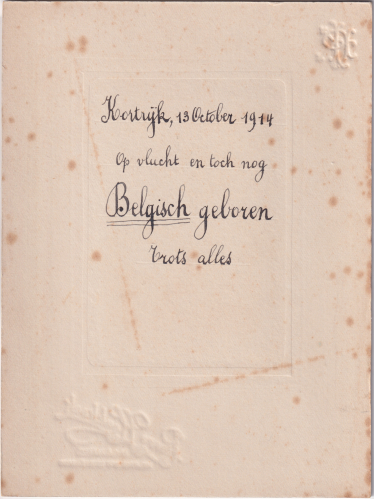 Kortrijk, 13 October 1914
Op vlucht en toch nog
Belgisch geboren
trots alles